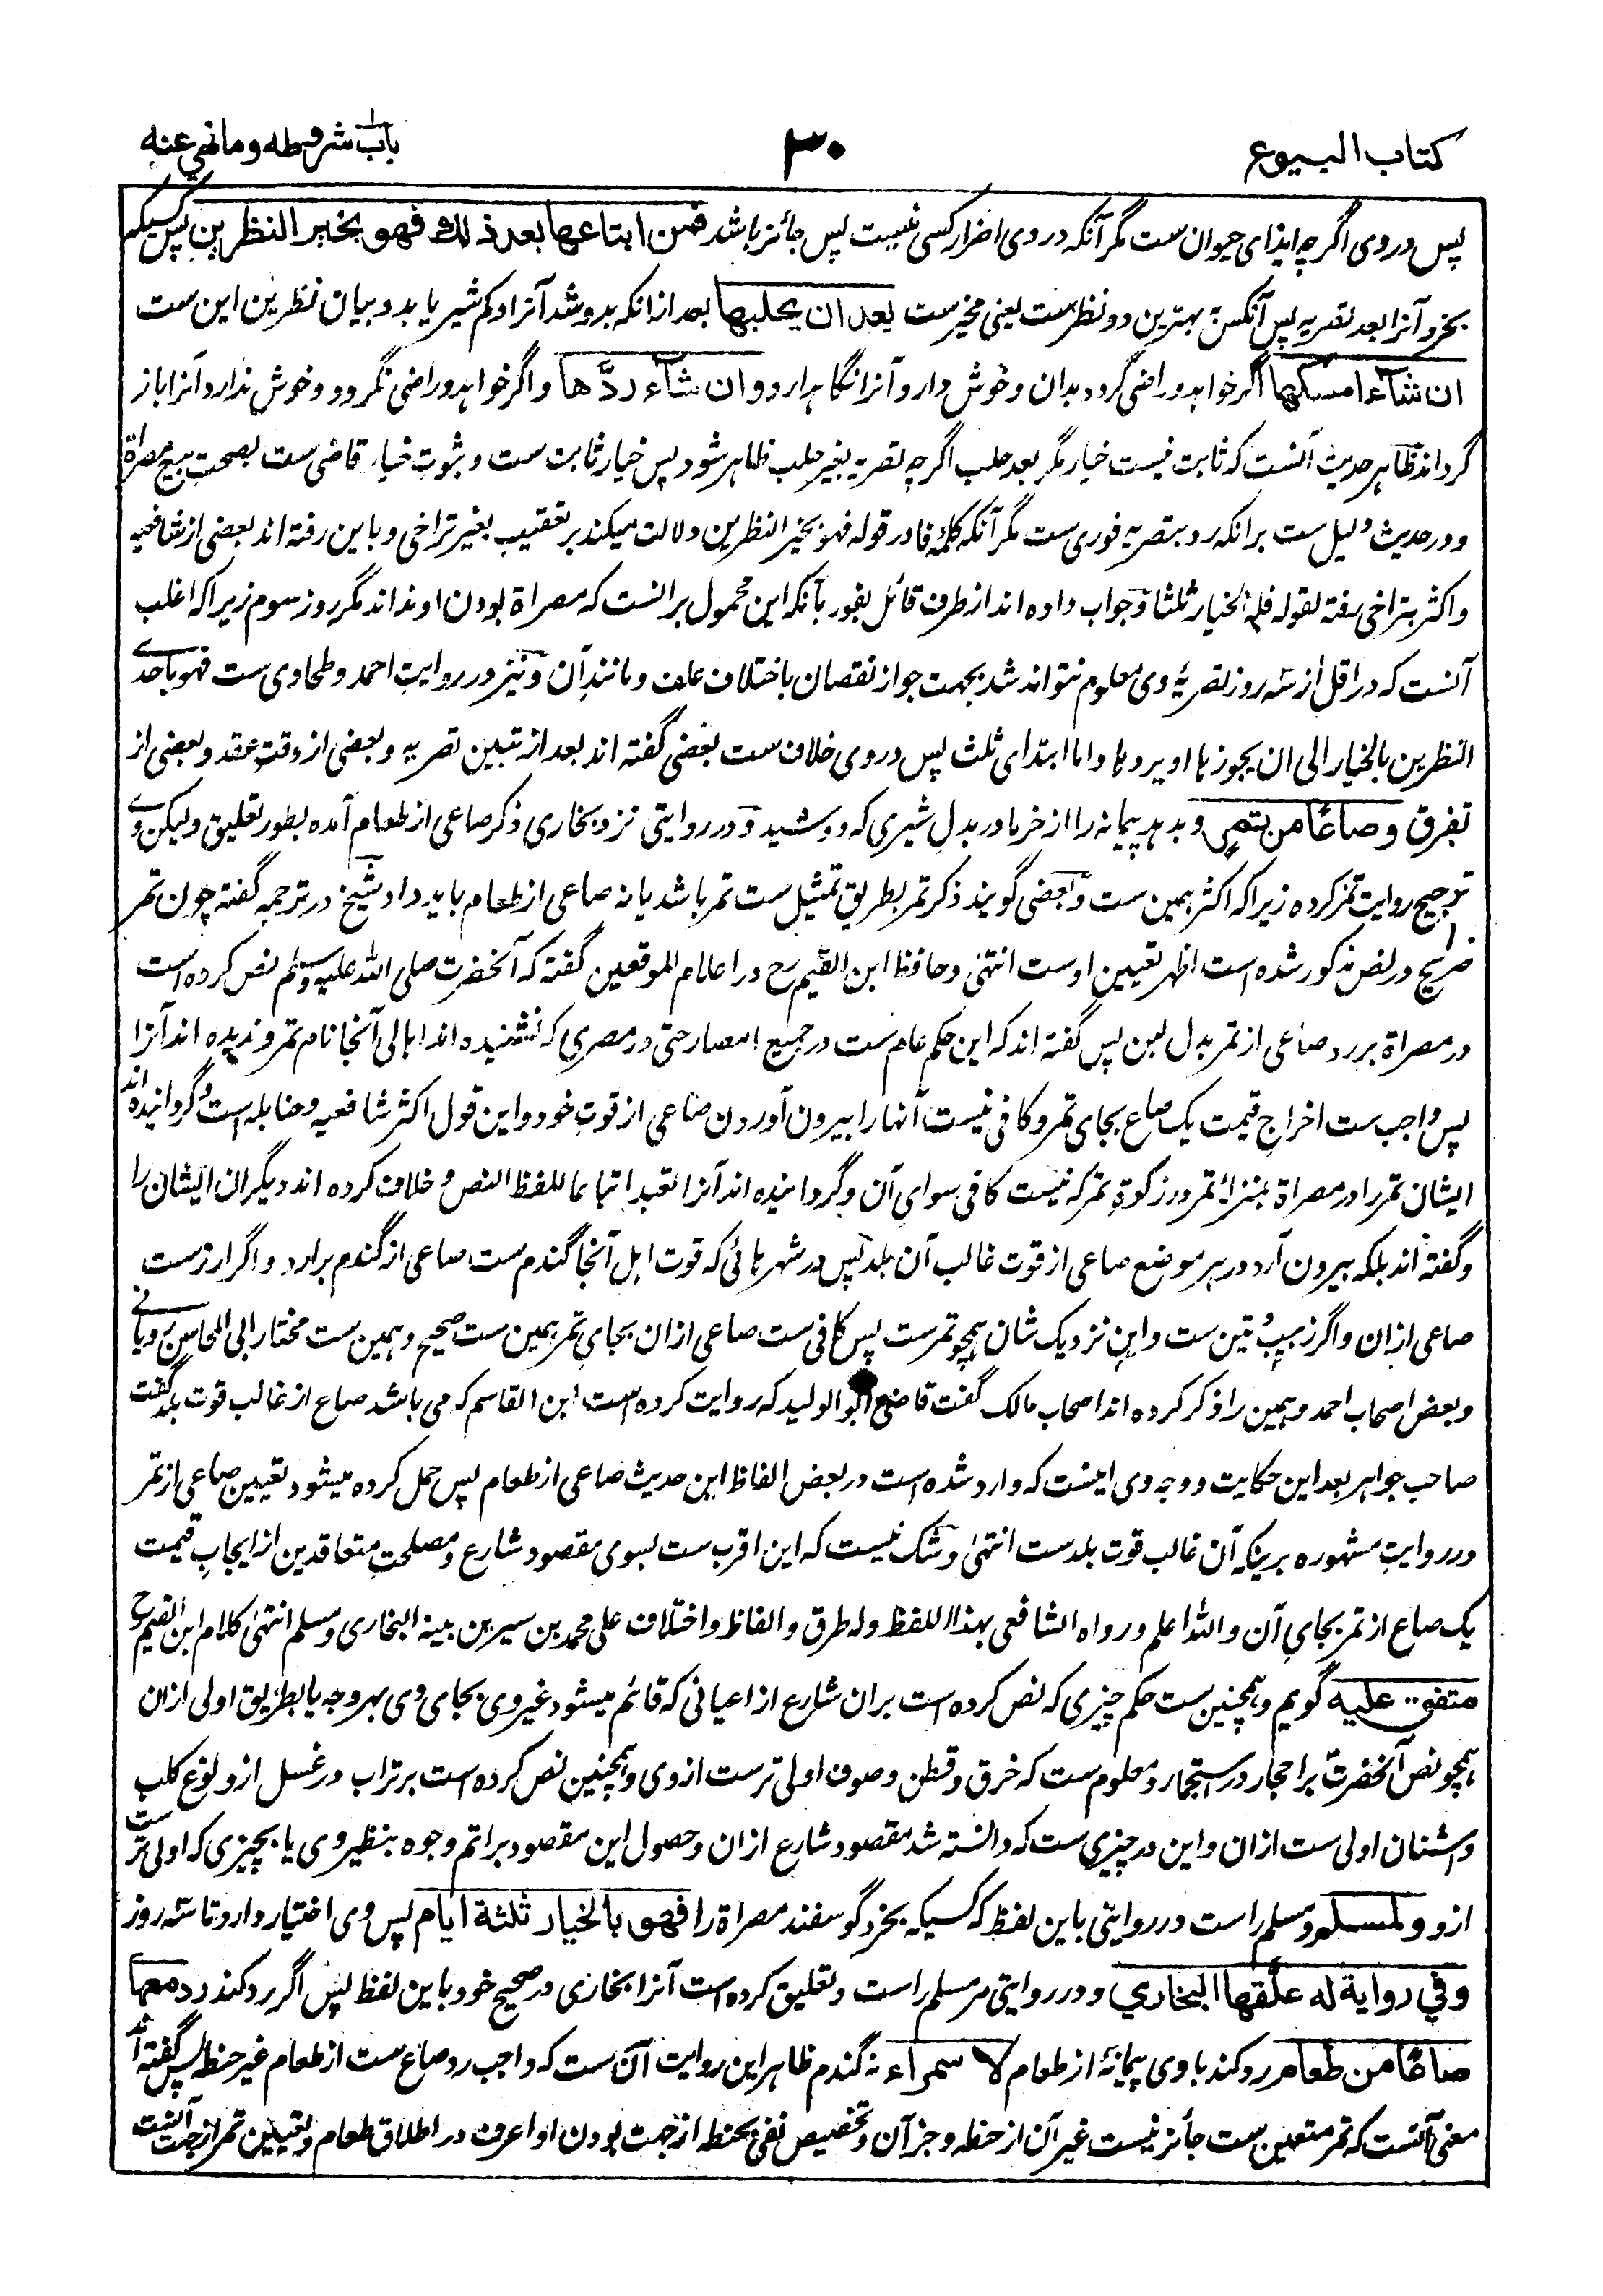 کتاب البیوع
۳۰
باب شروطه وما نهي عنه
پس در وی اگرچه ایذای حیوان ست مگر آنکه در وی اضرار کسی نیست پس جائز باشد فمن ابتاعها بعد ذلك فهو بخير النظرين پس کسیکه
بخرد آنرا بعد تصریه پس آنکس به بهترین دو نظرست یعنی مخیرست بعد ان يحلبها بعد ازانکه بدوشد آنرا و کم شیر یابد و بیان نظرین این ست
ان شاء امسكها اگر خواهد و راضی گردد بدان و خوش دارد آنرا نگاهدارد وان شاء ردّها و اگر خواهد و راضی نگردد و خوش ندارد آنرا باز
گرداند ظاهر حدیث آنست که ثابت نیست خیار مگر بعد حلب اگرچه تصریه بغیر حلب ظاهر شود پس خیار ثابت ست و ثبوت خیار قاضی ست بصحت بیع مصراة
و در حدیث دلیل ست برانکه رد بتصریه فوری ست مگر آنکه کلمه فا در قوله فهو بخیر النظرین دلالت میکند بر تعقیب بغیر تراخی و باین رفته اند بعضی از شافعیه
و اکثر بتراخی رفته لقوله فله الخیار ثلثا و جواب داده اند از طرف قائل بفور بآنکه این محمول برانست که مصراة بودن او نداند مگر روز سوم زیراکه اغلب
آنست که در اقل از سه روز تصریهٔ وی معلوم نتواند شد بجهت جواز نقصان باختلاف علف و مانند آن و نیز در روایت احمد و طحاوی ست فهو باحدی
النظرین بالخیار الی ان یجوزها او یردها و اما ابتدای ثلث پس در وی خلاف ست بعضی گفته اند بعد از تبین تصریه و بعضی از وقت عقد و بعضی از
تفرق وصاعًا من تمر و بدهد پیمانه را از خرما در بدل شیری که دوشید و در روایتی نزد بخاری ذکر صاعی از طعام آمده بطور تعلیق و لیکن وی
ترجیح روایت تمر کرده زیراکه اکثر همین ست و بعضی گویند ذکر تمر بطریق تمثیل ست تمر باشد یا نه صاعی از طعام باید داد شیخ در ترجمه گفته چون تمر
صریح در نص مذکور شده است اظهر تعیین اوست انتهی و حافظ ابن القیم رح در اعلام الموقعین گفته که آنحضرت صلی الله علیه وسلم نص کرده است
در مصراة برد صاعی از تمر بدل لبن پس گفته اند که این حکم عام ست در جمیع امصار حتی در مصری که نشنیده اند اهالی آنجا نام تمر و ندیده اند آنرا
پس واجب ست اخراج قیمت یک صاع بجای تمر و کافی نیست آنها را بیرون آوردن صاعی از قوت خود و این قول اکثر شافعیه و حنابله است و گردانیده اند
ایشان تمر را در مصراة بمنزلهٔ تمر در زکوة تمر که نیست کافی سوای آن و گردانیده اند آنرا تعبد اتباعا للفظ النص و خلاف کرده اند دیگران ایشان را
و گفته اند بلکه بیرون آرد در هر موضع صاعی از قوت غالب آن بلد پس در شهرهائی که قوت اهل آنجا گندم ست صاعی از گندم برارد و اگر ارزست
صاعی ازان و اگر زبیب و تین ست و این نزدیک شان همچو تمرست پس کافی ست صاعی ازان بجای تمر همین ست صحیح و همین ست مختار ابی المحاسن رویانی
و بعض اصحاب احمد و همین را ذکر کرده اند اصحاب مالک گفت قاضی ابو الولید که روایت کرده است ابن القاسم که می باشد صاع از غالب قوت بلد گفت
صاحب جواهر بعد این حکایت و وجه وی اینست که وارد شده است در بعض الفاظ این حدیث صاعی از طعام پس حمل کرده میشود تعیین صاعی از تمر
در روایت مشهوره برینکه آن غالب قوت بلدست انتهی و شک نیست که این اقرب ست بسوی مقصود شارع و مصلحت متعاقدین از ایجاب قیمت
یک صاع از تمر بجای آن والله اعلم و رواه الشافعی بهذا اللفظ وله طرق و الفاظ و اختلاف علی محمد بن سیرین بینه البخاری و مسلم انتهی کلام ابن القیم رح
متفق عليه گویم و همچنین ست حکم چیزی که نص کرده است بران شارع از اعیانی که قائم میشود غیر وی بجای وی بهر وجه یا بطریق اولی ازان
همچو نص آنحضرت بر احجار در استجمار و معلوم ست که خرق و قطن و صوف اولی ترست از وی و همچنین نص کرده است بر تراب در غسل از ولوغ کلب
و اشنان اولی ست ازان و این در چیزی ست که دانسته شد مقصود شارع ازان و حصول این مقصود بر اتم وجوه بنظیر وی یا بچیزی که اولی تر ست
ازو ولمسلم و مسلم راست در روایتی باین لفظ که کسیکه بخرد گوسفند مصراة را فهو بالخيار ثلثة ايام پس وی اختیار دارد تا سه روز
وفي رواية له علّقها البخاري و در روایتی مر مسلم راست و تعلیق کرده است آنرا بخاری در صحیح خود باین لفظ پس اگر رد کند رد معها
صاعًا من طعام رد کند با وی پیمانهٔ از طعام لا سمراء نه گندم ظاهر این روایت آن ست که واجب رد صاع ست از طعام غیر حنطه پس گفته اند
معنی آنست که تمر متعین ست جائز نیست غیر آن از حنطه و جز آن و تخصیص نفی بحنطه از جهت بودن او اعرف در اطلاق طعام و تعیین تمر از جهت آنست